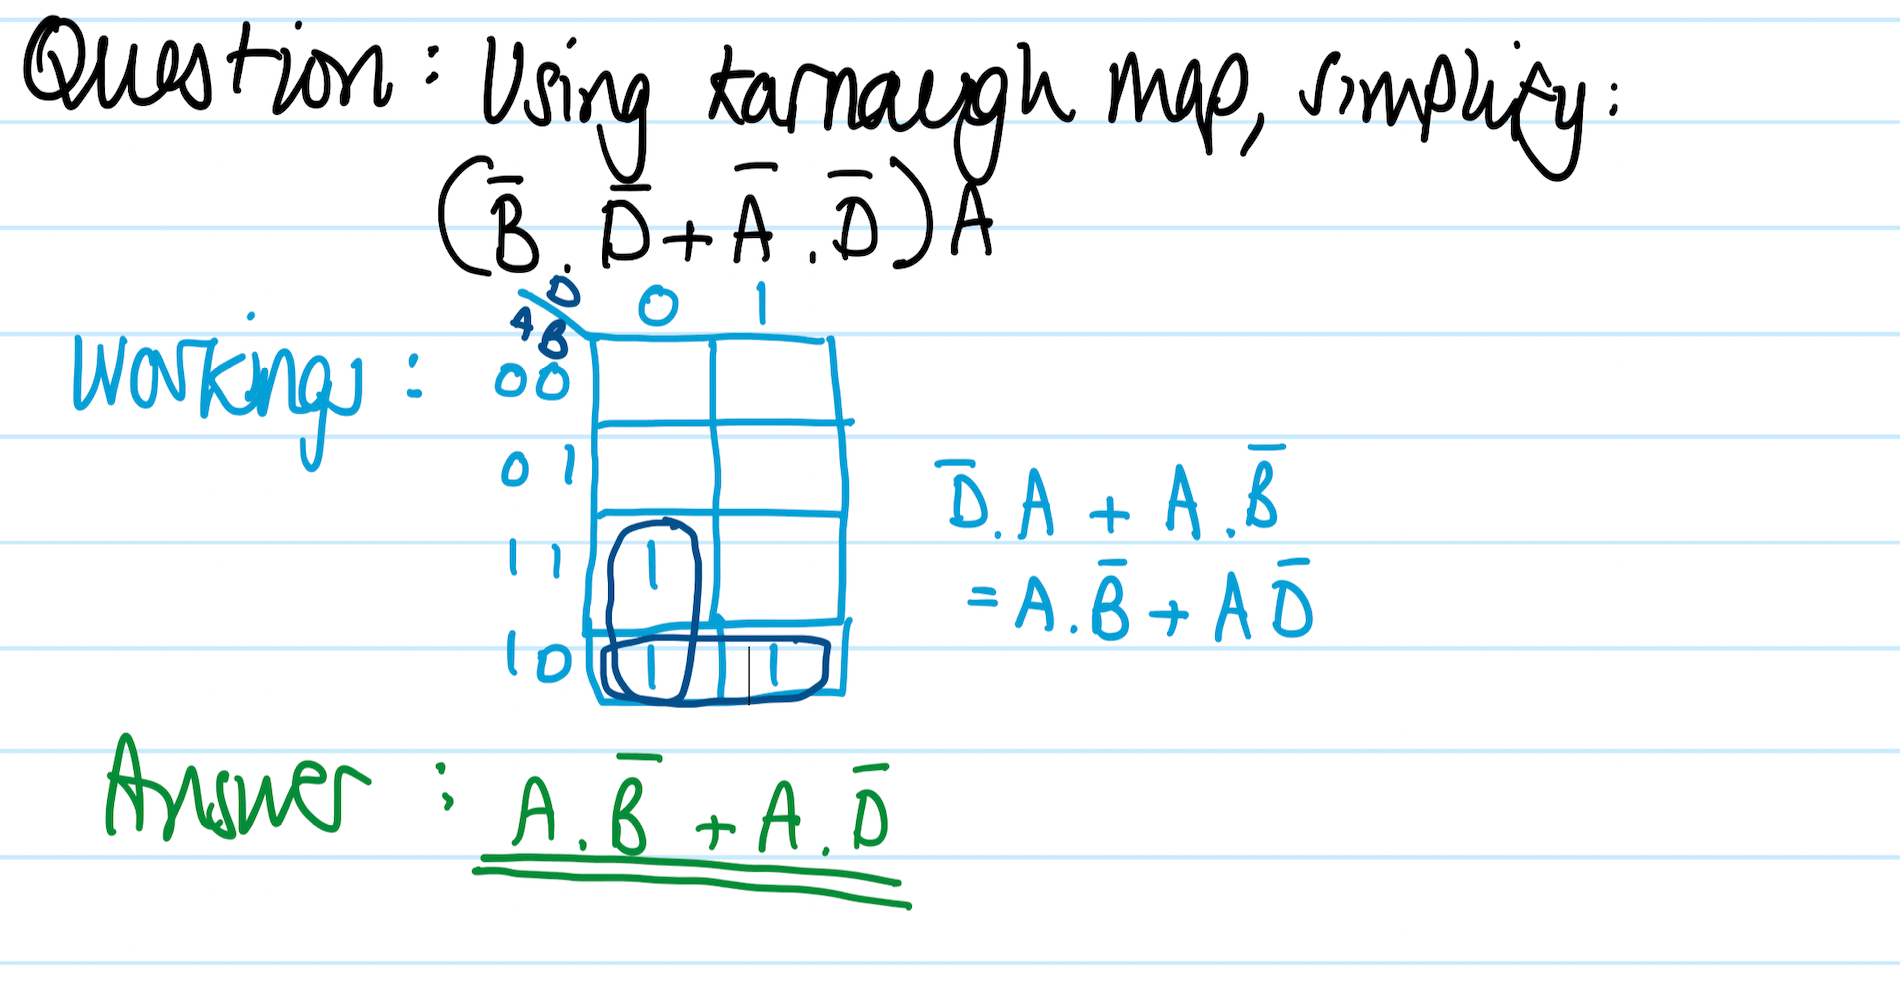 Question: Using Karnaugh map, simplify:
(B̅.D̅+A̅.D̅)A
D 0 1
AB
Workings:
00
01
11 1
10 1 1
D̅.A + A.B̅
= A.B̅ + A D̅
Answer: A.B̅ + A.D̅